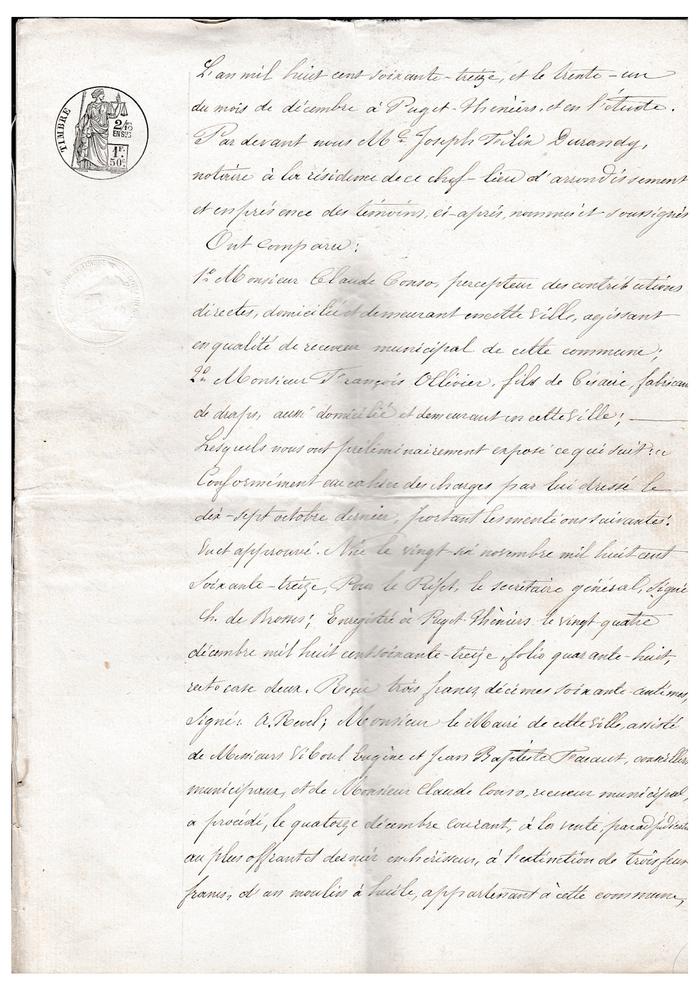 TIMBRE
2/10
EN SUS
1F.
50c
L'an mil huit cent soixante-treize, et le trente-un
du mois de décembre à Puget-Théniers, et en l'étude.
Par devant nous Me Joseph Félix Durandy,
notaire à la résidence de ce chef-lieu d'arrondissement
et en présence des témoins, ci-après, nommés et soussignés
Ont comparu:
1o Monsieur Claude Conso, percepteur des contributions
directes, domicilié et demeurant en cette ville, agissant
en qualité de receveur municipal de cette commune;
2o Monsieur François Ollivier, fils de Césaire, fabricant
de draps, aussi domicilié et demeurant en cette ville;
Lesquels nous ont préliminairement exposé ce qui suit:
Conformément au cahier des charges par lui dressé le
dix-sept octobre dernier, portant les mentions suivantes:
Vu et approuvé. Nice le vingt six novembre mil huit cent
soixante-treize, Pour le Préfet, le secrétaire général, signé
Ch. de Brosses; Enregistré à Puget-Théniers le vingt quatre
décembre mil huit cent soixante-treize, folio quarante-huit,
recto case deux. Reçu trois francs décimes soixante centimes,
signé: A. Revel; Monsieur le Maire de cette ville, assisté
de Messieurs Eugène et Jean Baptiste conseillers
municipaux, et de Monsieur Claude Conso, receveur municipal,
a procédé, le quatorze décembre courant, à la vente, par adjudication
au plus offrant et dernier enchérisseur, à l'extinction de trois feux
francs, d'un moulin à huile, appartenant à cette commune,